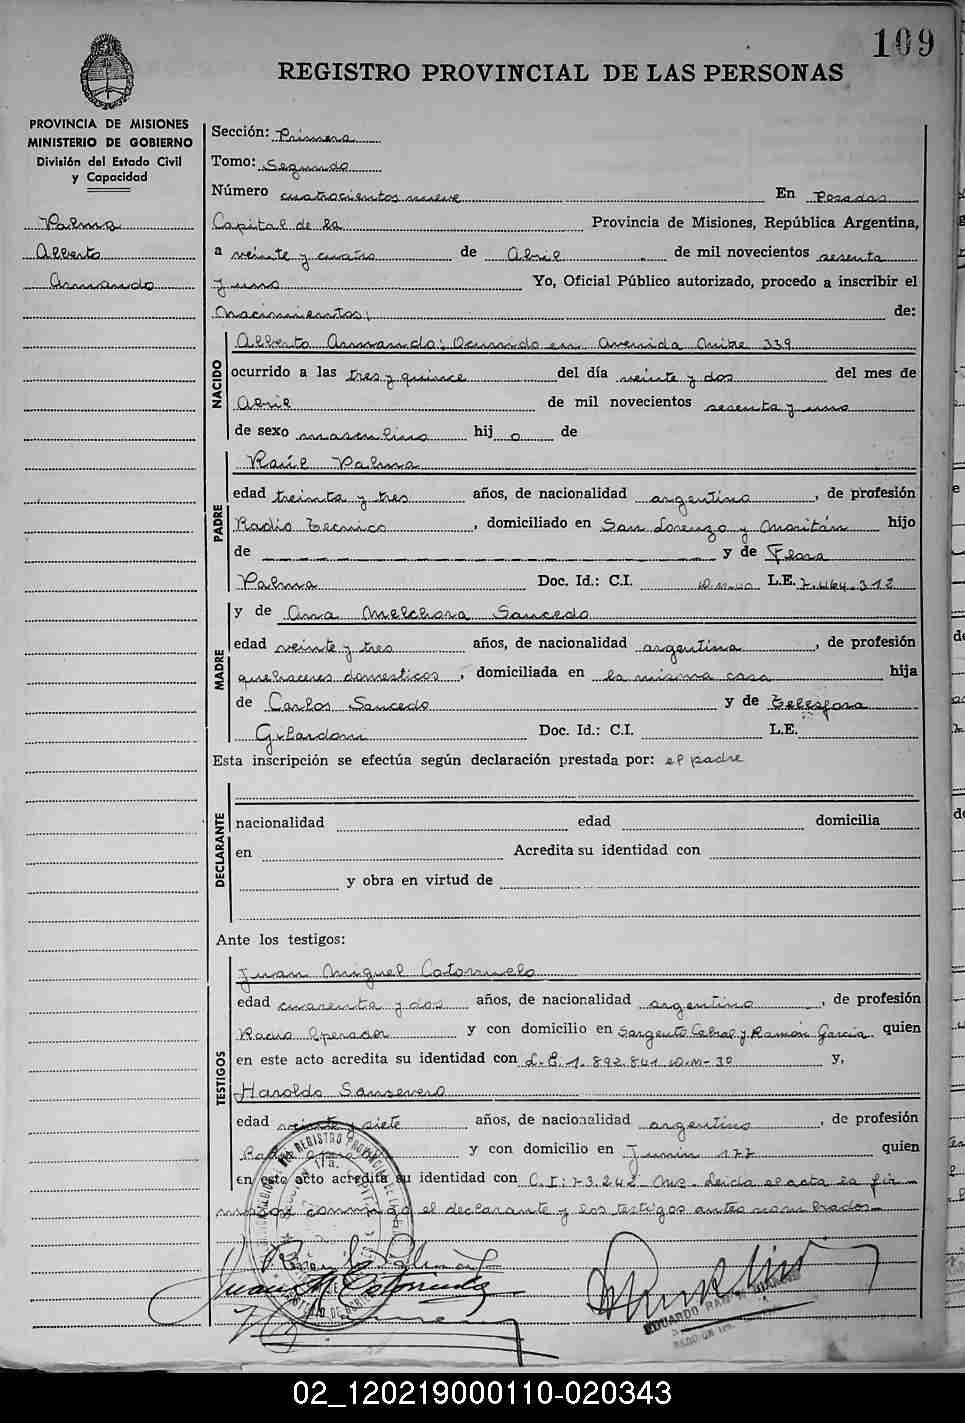 109
REGISTRO PROVINCIAL DE LAS PERSONAS
PROVINCIA DE MISIONES
MINISTERIO DE GOBIERNO
División del Estado Civil
y Capacidad
Palma
Alberto
Armando
Sección: Primera
Tomo: Segundo
Número cuatrocientos nueve En Posadas
Capital de la Provincia de Misiones, República Argentina,
a veinte y cuatro de Abril de mil novecientos sesenta
y uno Yo, Oficial Público autorizado, procedo a inscribir el
nacimientos; de:
NACIDO
Alberto Armando; Ocurrido en Avenida Mitre 339
ocurrido a las tres y quince del día veinte y dos del mes de
Abril de mil novecientos sesenta y uno
de sexo masculino hij o de
PADRE
Raúl Palma
edad treinta y tres años, de nacionalidad argentino, de profesión
Radio Tecnico, domiciliado en San Lorenzo y Moritán hijo
de y de Flora
Palma Doc. Id.: C.I. D.M.40 L.E. 7.464.312
MADRE
y de Ana Melchora Saucedo
edad veinte y tres años, de nacionalidad argentina, de profesión
quehaceres domesticos, domiciliada en la misma casa hija
de Carlos Saucedo y de Telesfora
Gilardoni Doc. Id.: C.I. L.E.
Esta inscripción se efectúa según declaración prestada por: el padre
DECLARANTE
nacionalidad edad domicilia
en Acredita su identidad con
y obra en virtud de
Ante los testigos:
TESTIGOS
Juan Miguel Cotorruelo
edad cuarenta y dos años, de nacionalidad argentino, de profesión
Radio Operador y con domicilio en Sargento Cabral y Ramón García quien
en este acto acredita su identidad con L.E. 1.892.841 D.M-30 y,
Haroldo Sansevero
edad veinte y siete años, de nacionalidad argentino, de profesión
Radio y con domicilio en Junín 177 quien
en este acto acredita su identidad con C.I: 73.242 Ms. Leida el acta la fir-
maron conmigo el declarante y los testigos antes nombrados-
02_120219000110-020343